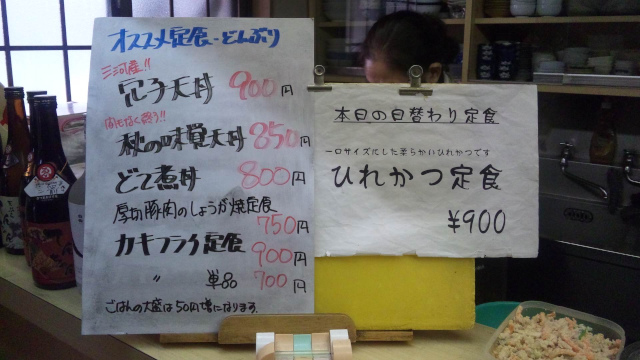 オススメ定食・どんぶり
三河産!!
穴子天丼 900円
間もなく終り!!
秋の味覚天丼 850円
どて煮丼 800円
厚切豚肉のしょうが焼定食 750円
カキフライ定食 900円
〃 単品 700円
ごはんの大盛は50円増になります。
本日の日替わり定食
一口サイズにした柔らかいひれかつです
ひれかつ定食
¥900